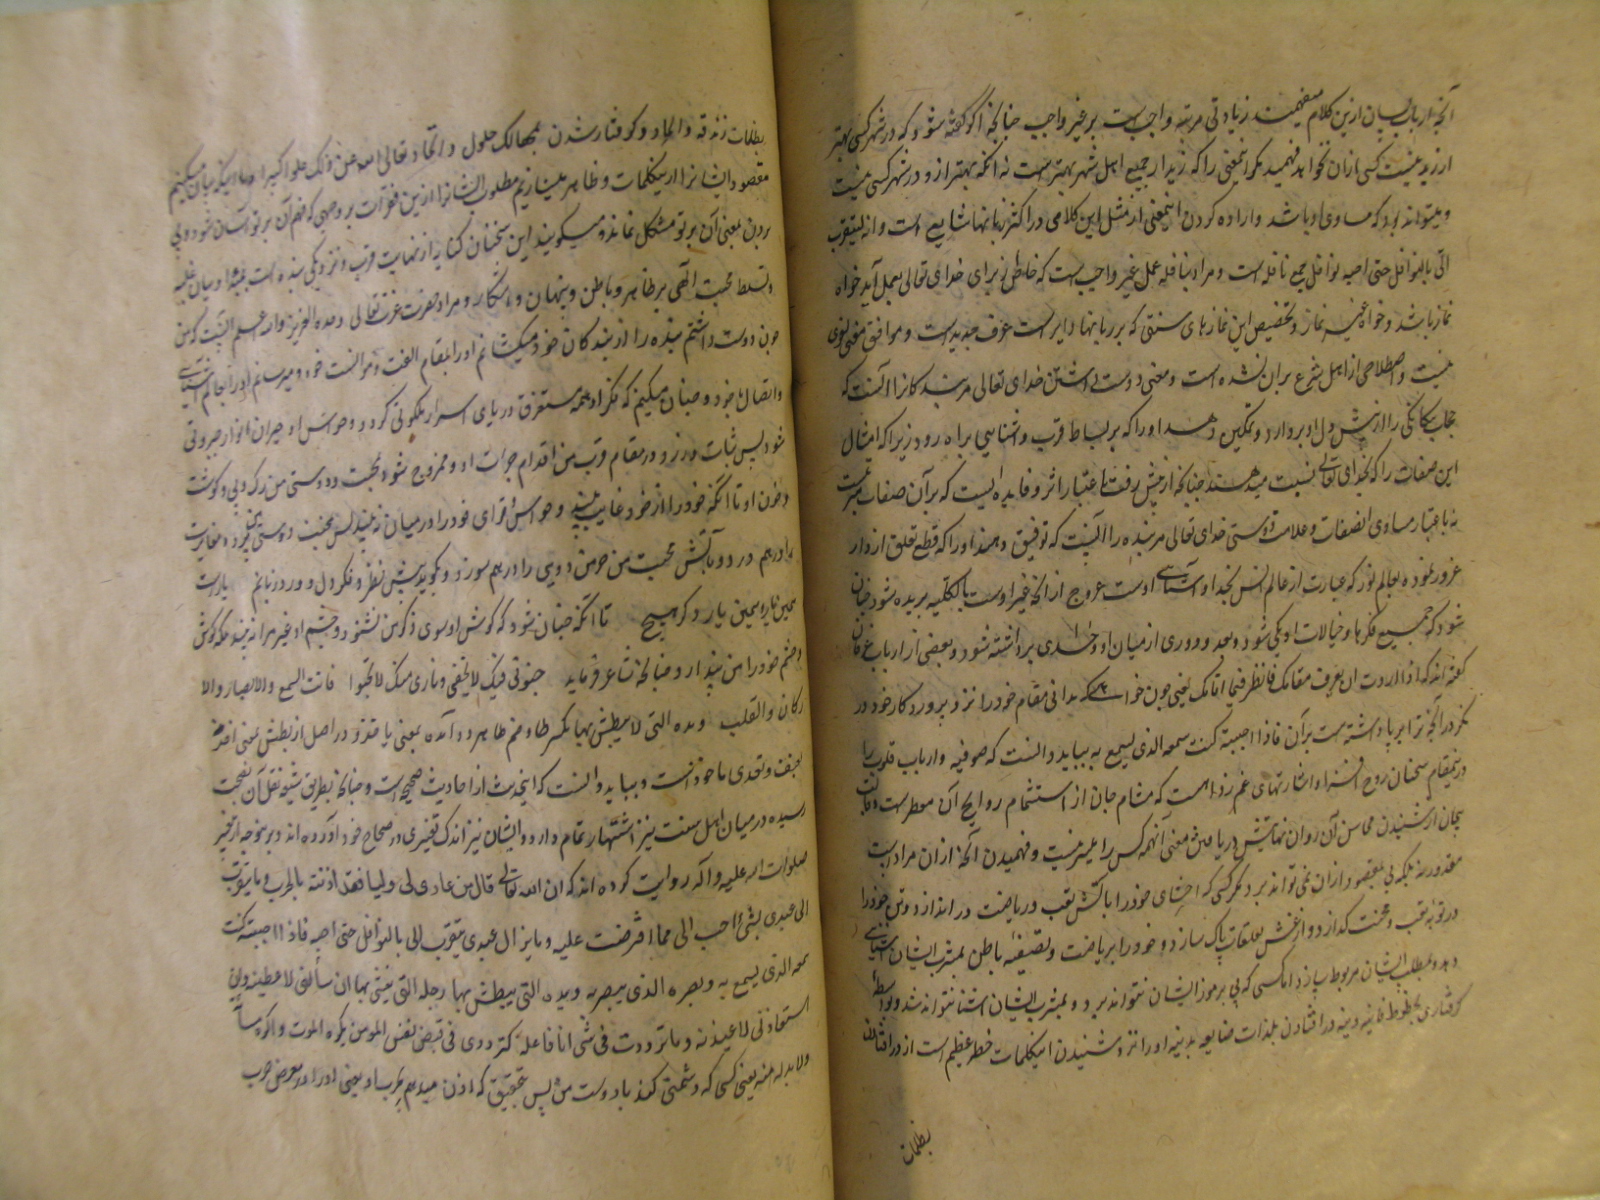 آنچه ارباب لسان ازین کلام میفهمند زیادتی مرتبه واجبست بر غیر واجب چنانچه اگر گفته شود که در شهر کسی بهتر
از زید نیست کسی ازان نخواهد فهمید مگر اینمعنی را که زید از جمیع اهل شهر بهتر است نه آنکه بهتر ازو در شهر کسی نیست
و میتواند بود که مساوی او باشد و اراده کردن اینمعنی از مثل این کلامی در اکثر زبانها شایع است و انه لیتقرب
الی بالنوافل حتی احبه نوافل جمع نافله است و مراد بنافله عمل غیر واجبست که خاطر برای خدای تعالی بعمل آید خواه
نماز باشد و خواه غیر نماز و تخصیص این نمازهای سنتی که بر زبانها دایر است عرف جدید است و موافق معنی لغوی
نیست و اصطلاحی از اهل شرع بران نشده است و معنی دوست داشتن خدای تعالی مر بنده کانرا آنست که
حجاب بیگانگی را از پیش دل او بردارد و تمکین دهد او را که بر بساط قرب و اشناسی براه رود زیرا که امثال
این صفات را که بخدای تعالی نسبت میدهند چنانکه از پیش رفت باعتبار اثر و فایده ایست که بر آن صفات مترتبست
نه باعتبار مبادی انصفات و علامت دوستی خدای تعالی مر بنده را آنست که توفیق دهد او را که قطع تعلق از دار
غرور نموده بعالم نور که عبارت از عالم انس بخدا و آشنایی اوست عروج از آنچه غیر اوست بالکلیه بریده شود چنان
شود که جمیع فکرها و خیالات او یکی شود و بعد و دوری از میان او و خدای برداشته شود و بعضی از ارباب عرفان
گفته اند که اذا اردت ان تعرف مقامک فانظر فیما اقامک یعنی چون خواهی که بدانی مقام خود را نزد پروردگار خود در
نگر در آنچه ترا برپا داشته است بر آن فاذا احببته کنت سمعه الذی یسمع به بباید دانست که صوفیه و ارباب قلوب را
درینمقام سخنان روح افزا و اشارتهای غم زداست که مشام جان از استشمام روایح آن معطر است و قالب
بیجان از شنیدن محاسن آن روان دریافتن معنی آنهمه کس را میسر نیست و فهمیدن آنچه ازان مراد است
مقدور نه بلکه پی بمقصود ازان نمی تواند برد مگر کسی که اجزای خود را باتش تعب و ریاضت در انداز و تن خود را
در بوته تعب و محنت گدازد و از غش تعلقات پاک سازد و خود را بریاضت و تصفیه باطن بمشرب ایشان آشنایی
دهد و بمطلب ایشان مربوط سازد اما کسی که پی برموز ایشان نتواند برد و بمشرب ایشان اشنا نتواند شد و بواسطه
گرفتاری بحظوظ فانیه دنیه و در افتادن بلذات ضایعه بدنیه او را نزد شنیدن اینکلمات خطر عظیم است از در افتادن
بظلمات
بظلمات زندقه و الحاد و گرفتار شدن بمهالک حلول و اتحاد تعالی الله عن ذلک علوا کبیرا و ما در اینجا بیان میکنیم
مقصود ایشانرا ازینکلمات و ظاهر میسازیم مطلوب ایشانرا ازین فقرات بر وجهی که فهم آن بر تو آسان شود و پی
بردن بمعنی آن بر تو مشکل نماند و میگویند این سخنان کنایه از نهایت قرب و نزدیکی بنده است بخدا و بیان غلبه
و تسلط محبت الهی بر ظاهر و باطن و پنهان و اشکار و مراد حضرت عزت تعالی وحده العزیز والله اعلم آنست که من
چون دوست داشتم بنده را از بندگان خود میکشانم او را بمقام الفت و موانست خود و میرسانم او را بعالم اشنایی
و اتصال بخود و چنان میکنم که فکر او همه مستغرق دریای اسرار ملکوتی گردد و حواس او حیران انوار جبروتی
شود پس ثبات ورزد در مقام قرب من اقدام جرات او و ممزوج شود بمحبت و دوستی من رگ و پی و گوشت
و خون او تا آنکه خود را از خود غایب بیند و حواس و قوای خود را در میان نه بیند پس محبت و دوستی من غیر و مغایرت
را در هم درد و بآتش محبت من خرمن دویی را در هم سوزد و بگوید پیش نظر و فکر دل و ورد زبانم یار است
همین یار و همین یار دگر هیچ تا آنکه چنان شود که گوش او سوی ذکر من نشنود و چشم او غیر مرا نه بیند بلکه گوش
و چشم خود را من پندارد چنانچه شاعر فرماید جنونی فیک لا یخفی و ناری منک لا تخبوا فانت السمع والابصار والا
رکان والقلب ویده التی لا یبطش بها بکسر طا و ضم طا هر دو آمده بمعنی یاخذ و در اصل از بطش بمعنی اخذ
بعنف و تعدی ماخوذ است و بباید دانست که اینحدیث از احادیث صحیح است و چنانچه بطریق شیعه نقل آن بصحت
رسیده در میان اهل سنت نیز اشتهار تمام دارد و ایشان نیز اندک تغییری در صحاح خود آورده اند و برینوجه از پیغمبر
صلوات الله علیه و آله روایت کرده اند که ان الله تعالی قال من عادی لی ولیا فقد اذنته بالحرب و ما یتقرب
الی عبدی بشئ احب الی مما افرضت علیه و ما یزال عبدی یتقرب الی بالنوافل حتی احبه فاذا احببته کنت
سمعه الذی یسمع به و بصره الذی یبصر به و یده التی یبطش بها و رجله التی یمشی بها ان سألنی لاعطینه و لئن
استعاذنی لاعیذنه و ما ترددت فی شئ انا فاعله کترددی فی قبض نفس المومن یکره الموت و اکره مساءته
و لا بد له منه یعنی کسی که دشمنی کند با دوست من پس بتحقیق که اذن میدهم بحرب او یعنی او را در معرض حرب